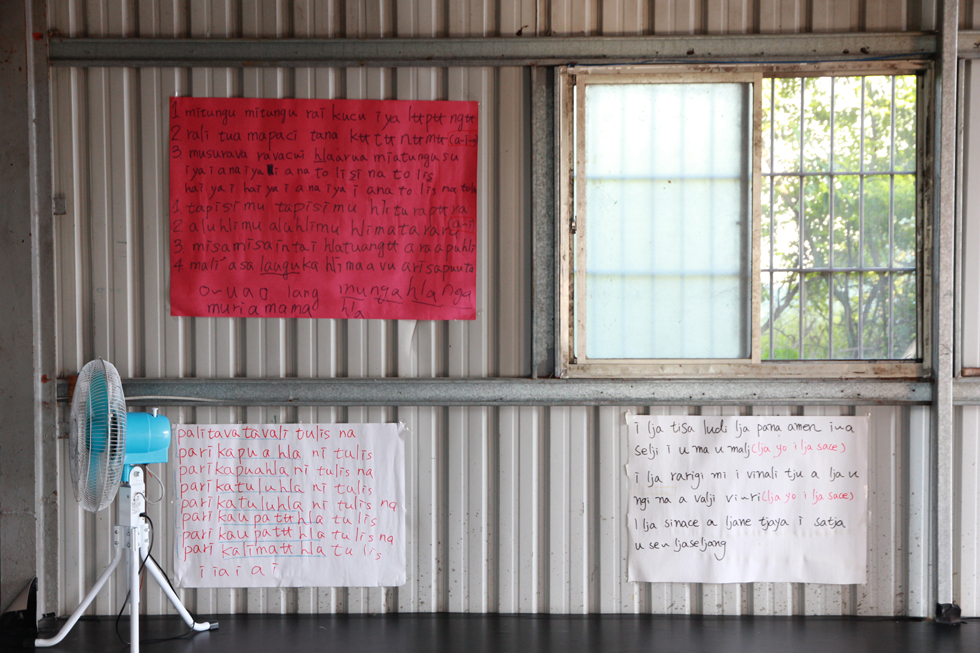 1 mitungu mitungu rai kucu iya lʉpʉʉ ngʉʉ
2 rali tua mapaci tana kʉʉ tʉʉ nʉʉmʉʉ (a-i-)
3 musurava ravacui hlaarua miatungusu
iya i ana iya i ana to lisi na to lis
hai ya i hai ya i ana iya i ana to lis na tulu
1 tapisimu tapisimu hlituraptʉ ra
2 aluhlimu aluhlimu hlimatararu (a-i)
3 misamisaintai hlatuangʉʉ araapuhli
4 mali'asa lauguka hlimaavu arisapuuto
oruao lang mungahlanga
muriamama hla
palitavatavali tulis na
pari kapua hla ni tulis
parikapuahla ni tulis na
parikatuluhla ni tulis
parikatuluhla ni tulis na
pari kaupatʉʉhla tu lis
pari kaupatʉʉhla tulis na
pari kalimatʉhla tu lis
i iai ai
i lja tisa ludi lja pana amen iua
selji i u ma u malj (lja yo i lja sace)
i lja rarigi mi i vinali tju a lja u
ngi na a valji viuri (lja yo i lja sace)
i lja sinace a ljane tjaya i satja
u seu ljaseljang